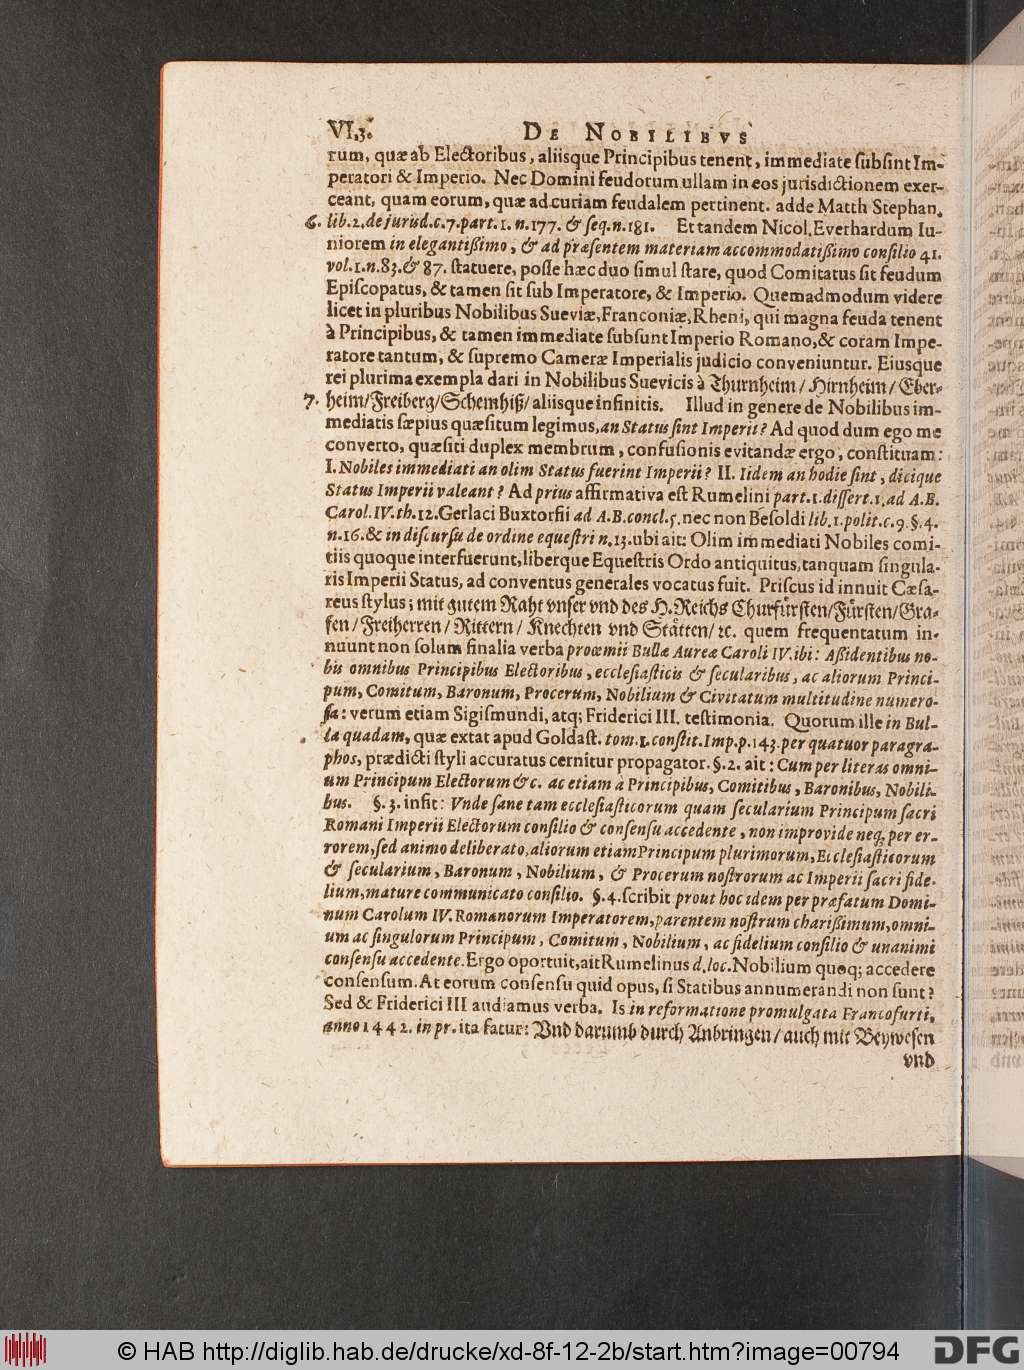 VI.3. DE NOBILIBVS
rum, quæ ab Electoribus, aliisque Principibus tenent, immediate subsint Im-
peratori & Imperio. Nec Domini feudorum ullam in eos jurisdictionem exer-
ceant, quam eorum, quæ ad curiam feudalem pertinent. adde Matth Stephan.
6. lib. 2. de jurisd. c. 7. part. 1. n. 177. & seq. n. 181. Et tandem Nicol. Everhardum Iu-
niorem in elegantißimo, & ad præsentem materiam accommodatißimo consilio 41.
vol. 1. n. 83. & 87. statuere, posse hæc duo simul stare, quod Comitatus sit feudum
Episcopatus, & tamen sit sub Imperatore, & Imperio. Quemadmodum videre
licet in pluribus Nobilibus Sueviæ, Franconiæ, Rheni, qui magna feuda tenent
à Principibus, & tamen immediate subsunt Imperio Romano, & coram Impe-
ratore tantum, & supremo Cameræ Imperialis judicio conveniuntur. Eiusque
rei plurima exempla dari in Nobilibus Suevicis à Thurnheim / Hirnheim / Eber-
7. heim / Freiberg / Schemhiß / aliisque infinitis. Illud in genere de Nobilibus im-
mediatis sæpius quæsitum legimus, an Status sint Imperii? Ad quod dum ego me
converto, quæsiti duplex membrum, confusionis evitandæ ergo, constituam:
I. Nobiles immediati an olim Status fuerint Imperii? II. Iidem an hodie sint, dicique
Status Imperii valeant? Ad prius affirmativa est Rumelini part. 1. dissert. 1. ad A.B.
Carol. IV. th. 12. Gerlaci Buxtorfii ad A.B. concl. 5. nec non Besoldi lib. 1. polit. c. 9. §. 4.
n. 16. & in discursu de ordine equestri n. 13. ubi ait: Olim immediati Nobiles comi-
tiis quoque interfuerunt, liberque Equestris Ordo antiquitus, tanquam singula-
ris Imperii Status, ad conventus generales vocatus fuit. Priscus id innuit Cæsa-
reus stylus; mit gutem Raht vnser vnd des H. Reichs Churfürsten / Fürsten / Gra-
fen / Freiherren / Rittern / Knechten vnd Stätten / ꝛc. quem frequentatum in-
nuunt non solum finalia verba proœmii Bullæ Aureæ Caroli IV. ibi: Aßidentibus no-
bis omnibus Principibus Electoribus, ecclesiasticis & secularibus, ac aliorum Princi-
pum, Comitum, Baronum, Procerum, Nobilium & Civitatum multitudine numero-
sa: verum etiam Sigismundi, atq; Friderici III. testimonia. Quorum ille in Bul-
la quadam, quæ extat apud Goldast. tom. 1. constit. Imp. p. 143. per quatuor paragra-
phos, prædicti styli accuratus cernitur propagator. §. 2. ait: Cum per literas omni-
um Principum Electorum &c. ac etiam à Principibus, Comitibus, Baronibus, Nobili-
bus. §. 3. infit: Vnde sane tam ecclesiasticorum quam secularium Principum sacri
Romani Imperii Electorum consilio & consensu accedente, non improvide neq, per er-
rorem, sed animo deliberato, aliorum etiam Principum plurimorum, Ecclesiasticorum
& secularium, Baronum, Nobilium, & Procerum nostrorum ac Imperii sacri fide-
lium, mature communicato consilio. §. 4. scribit prout hoc idem per præfatum Domi-
num Carolum IV. Romanorum Imperatorem, parentem nostrum charißimum, omni-
um ac singulorum Principum, Comitum, Nobilium, ac fidelium consilio & unanimi
consensu accedente. Ergo oportuit, ait Rumelinus d. loc. Nobilium quoq; accedere
consensum. At eorum consensu quid opus, si Statibus annumerandi non sunt?
Sed & Friderici III audiamus verba. Is in reformatione promulgata Francofurti,
anno 1442. in pr. ita fatur: Vnd darumb durch Anbringen / auch mit Beywesen
vnd
© HAB http://diglib.hab.de/drucke/xd-8f-12-2b/start.htm?image=00794 DFG